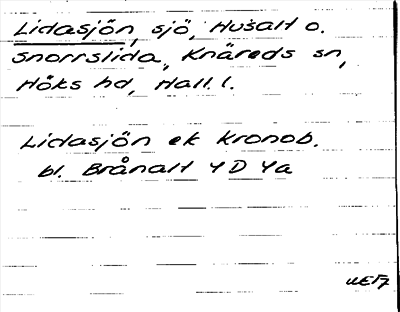 Lidasjön, sjö, Hušalt o.
Snorrslida, Knäreds sn,
Höks hd, Hall. l.
Lidasjön ek Kronob.
bl. Brånalt 4 D 4a